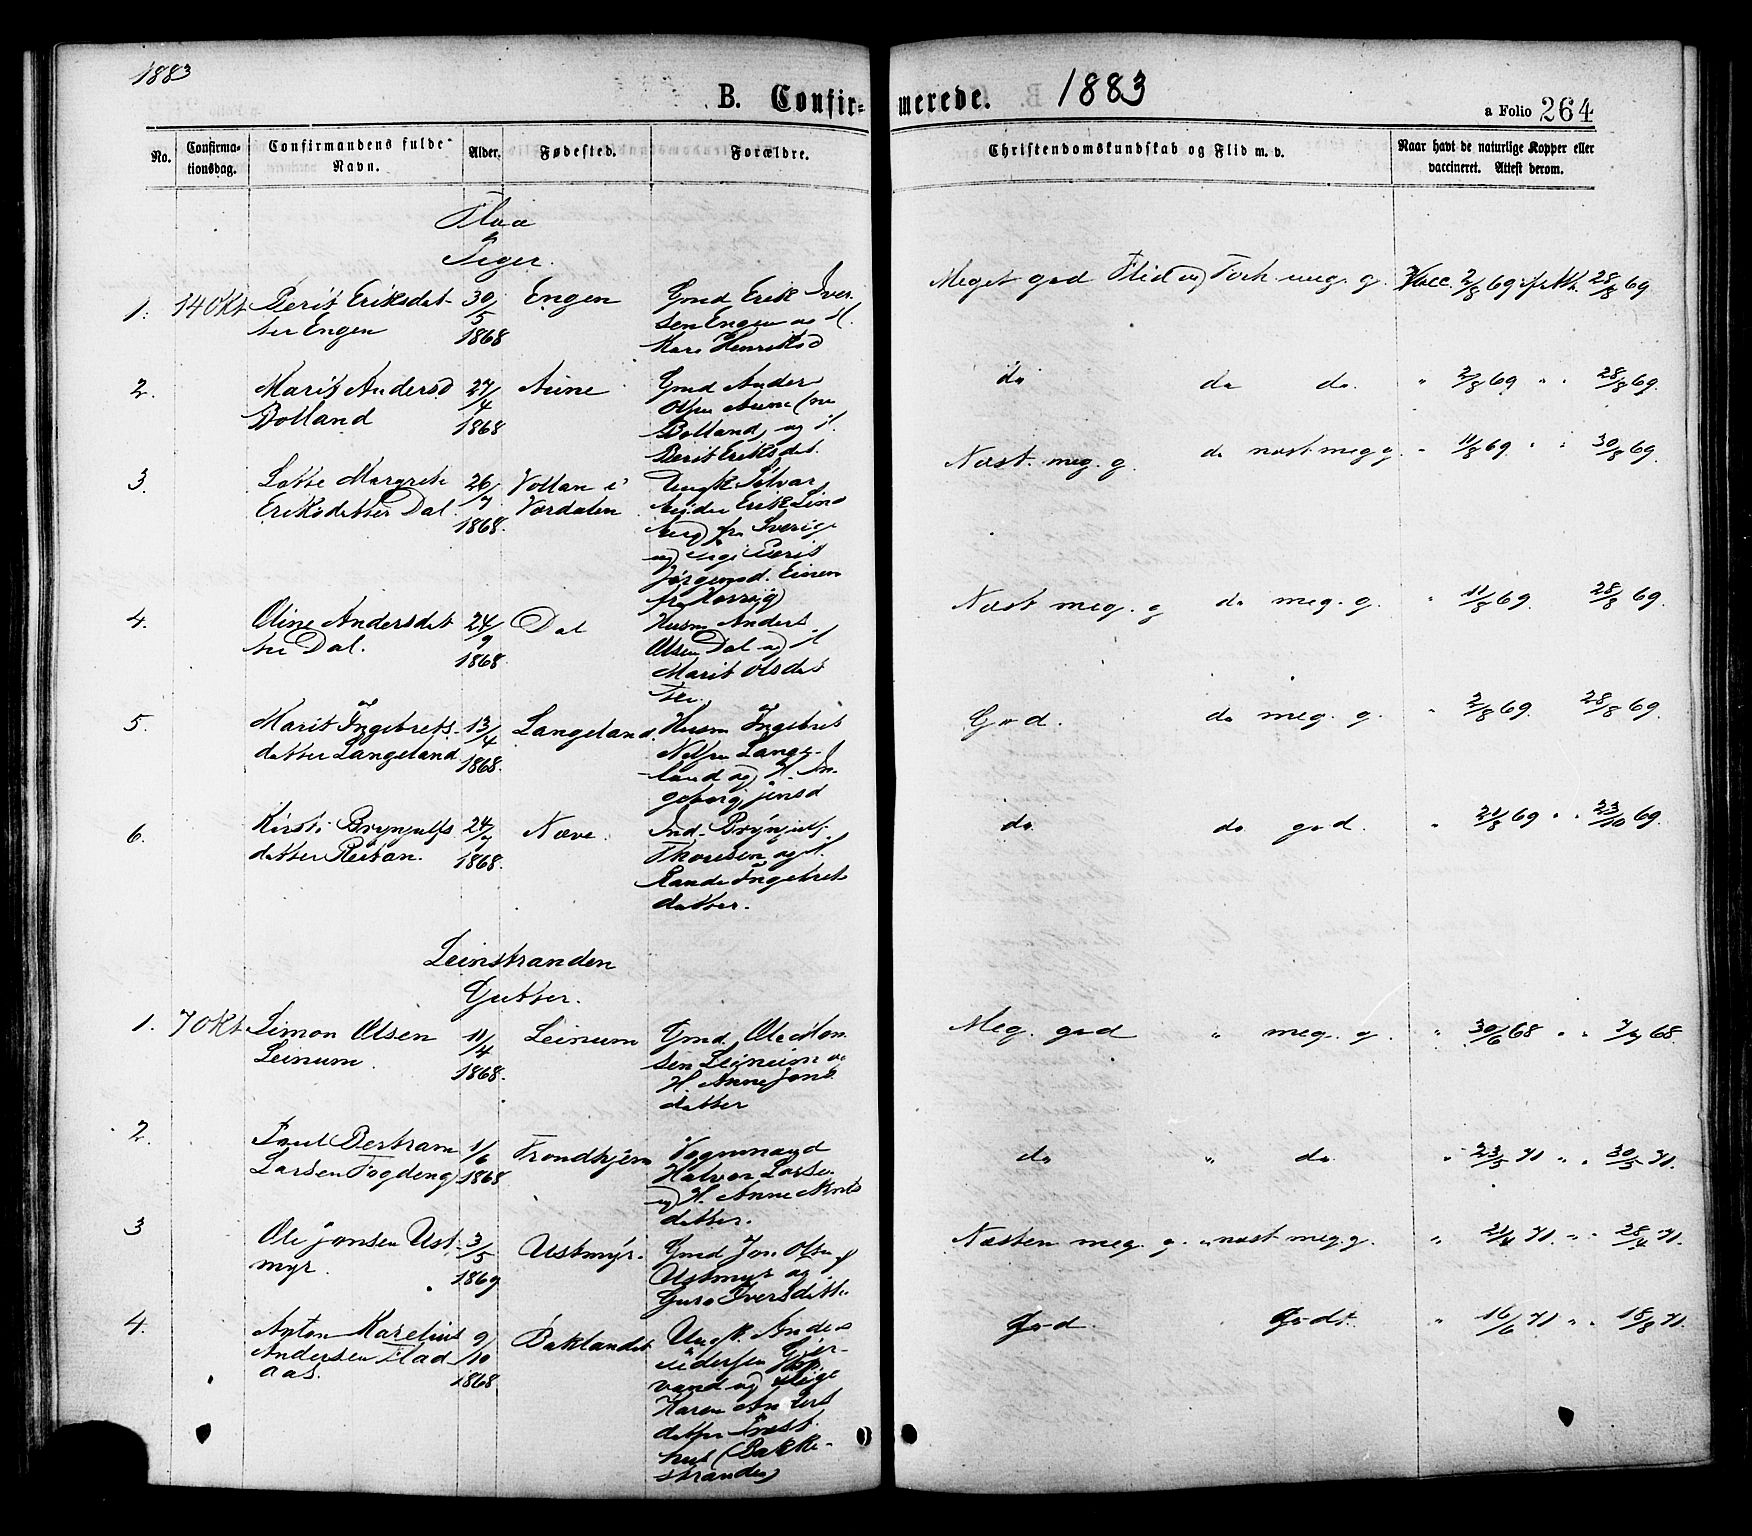 1883
B. Confir- merede. 1883
a Folio 264
No. Confirma- tionsdag. Confirmandens fulde Navn. Alder. Fødested. Forældre. Christendomskundskab og Flid m. v. Naar havt de naturlige Kopper eller vaccineret. Attest derom.
Flaa
Piger.
1. 14 Okt Berit Eriksdat- 30/5 Engen Gmd Erik Iver-
ter Engen 1868 sen Engen og H.
Kari Henriksd
Meget god Flid og Forh. meg. g. Vacc. 2/8 69 28/8 69
2. Marit Andersd 27/4 Aune Gmd Anders
Bolland 1868 Olsen Aune (nu
Bolland) og H.
Berit Eriksdat.
do do do. " 2/8 69 " " 28/8 69.
3. Lotte Margrete 26/7 Vollan i Ungk
Eriksdatter Dal. 1868. Værdalen Erik Lind
berg fra Sverige
og Pige Berit
Jørgensd. Einen
Næst. meg. g. do næst meg g. " 11/8 69 " " 30/8 69.
4. Oline Andersdat 24/9 Dal Husm Anders
ter Dal. 1868. Olsen Dal og H
Marit Olsdat
ter.
Næst meg. g do meg. g. " 11/8 69. 28/8 69.
5. Marit Ingebrets- 13/4 Langeland. Husm Ingebret
datter Langeland 1868. Nilsen Lange-
land og H. In-
geborg Jensd
God. do meg. g. " 2/8 69. 28/8 69.
6. Kirsti Brynjulfs 24/7 Næve. Ind. Brynjulf
datter Reitan. 1868. Thoresen og H.
Rande Ingebrets
datter.
do. do god. " 21/8 69 " " 23/10 69.
Leinstranden
Gutter.
1. 7 Okt Simon Olsen 11/4 Leinum Gmd Ole Mon
Leinum. 1868. sen Leinum og
H. Anne Jons
datter
Meg. god " meg. g. " 30/6 68 " " 7/7 68.
2. Paul Bertram 1/6 Trondhjem Vognmand
Larsen Fogdeng 1868 Halvor Larsen
og H. Anne Arnts
datter.
do " do " 23/5 71 " " 30/5 71.
3 Ole Jonsen Ust- 3/5 Ustmyr. Gmd Jon Olsen
myr. 1869 Ustmyr og
Guro Iversdatter
Næsten meg. g. " næst meg. g. " 21/4 71. " " 28/4 71.
4. Anton Karelius 9/10 Baklandet Ungk. Anders
Andersen Flad 1868 Pedersen Gjer-
aas. vand og Pige
Karen Anders
datter Præst
hus (Bakke-
stranden)
God. Godt. " 16/6 71 " " 18/8 71.